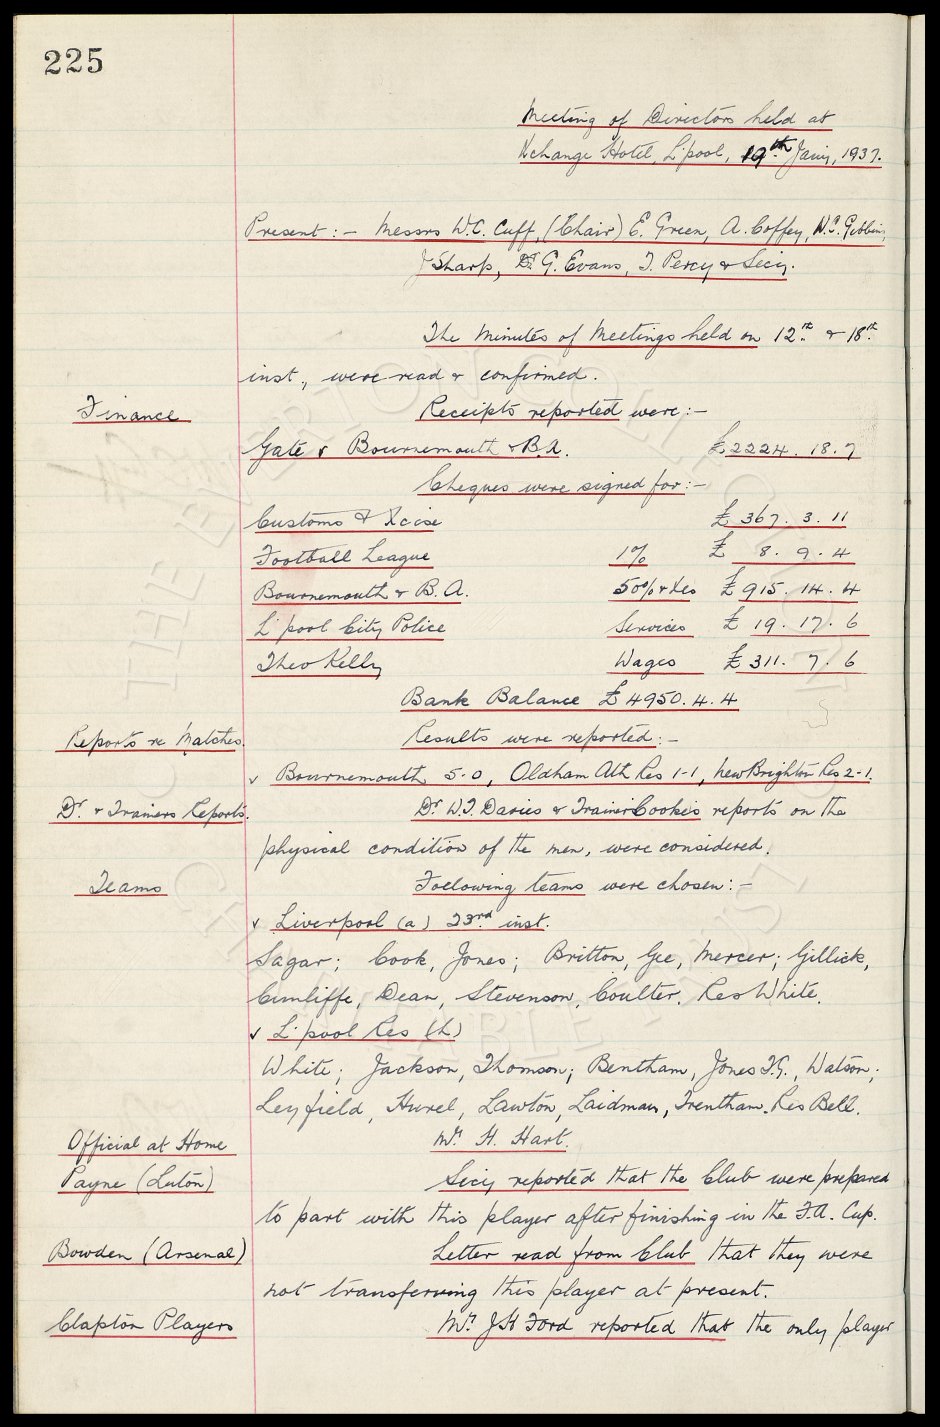 225
Meeting of Directors held at
Xchange Hotel, L'pool, 19th Jany, 1937.
Present :- Messrs W.C. Cuff, (Chair) E. Green, A. Coffey, W.C. Gibbins,
J Sharp, Dr. G. Evans, T. Percy & Secy.
The Minutes of Meetings held on 12th & 18th
inst., were read & confirmed.
Finance
Receipts reported were :-
Gate v Bournemouth & B.A. £2224. 18. 7
Cheques were signed for :-
Customs & Xcise £ 367. 3. 11
Football League 1% £ 8. 9. 4
Bournemouth & B.A. 50% & Xes £ 915. 14. 4
L'pool City Police Services £ 19. 17. 6
Theo Kelly Wages £ 311. 7. 6
Bank Balance £4950. 4. 4
Reports re Matches.
Results were reported :-
v Bournemouth 5-0, Oldham Ath Res 1-1, New Brighton Res 2-1.
Dr. & Trainers Reports.
Dr W.J. Davies & Trainer Cooke's reports on the
physical condition of the men, were considered.
Teams
Following teams were chosen :-
v Liverpool (a) 23rd inst.
Sagar; Cook, Jones; Britton, Gee, Mercer; Gillick,
Cunliffe, Dean, Stevenson, Coulter. Res White.
v L'pool Res (h)
White; Jackson, Thomson; Bentham, Jones T.G., Watson;
Leyfield, Hurel, Lawton, Laidman, Trentham. Res Bell.
Official at Home
Mr. H. Hart.
Payne (Luton)
Secy reported that the Club were prepared
to part with this player after finishing in the F.A. Cup.
Bowden (Arsenal)
Letter read from Club that they were
not transferring this player at present.
Clapton Players
Mr. J H Ford reported that the only player